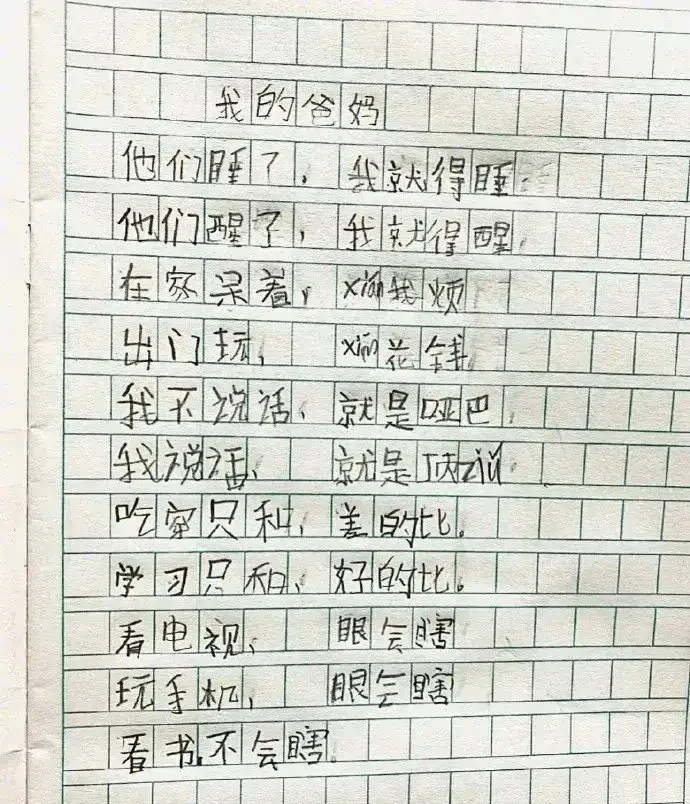 我的爸妈
他们睡了,我就得睡
他们醒了,我就得醒,
在家呆着,xián我烦
出门玩,xián花钱
我不说话,就是哑巴,
我说话,就是顶zuǐ
吃穿只和,差的比。
学习只和,好的比。
看电视,眼会瞎
玩手机,眼会瞎
看书不会瞎